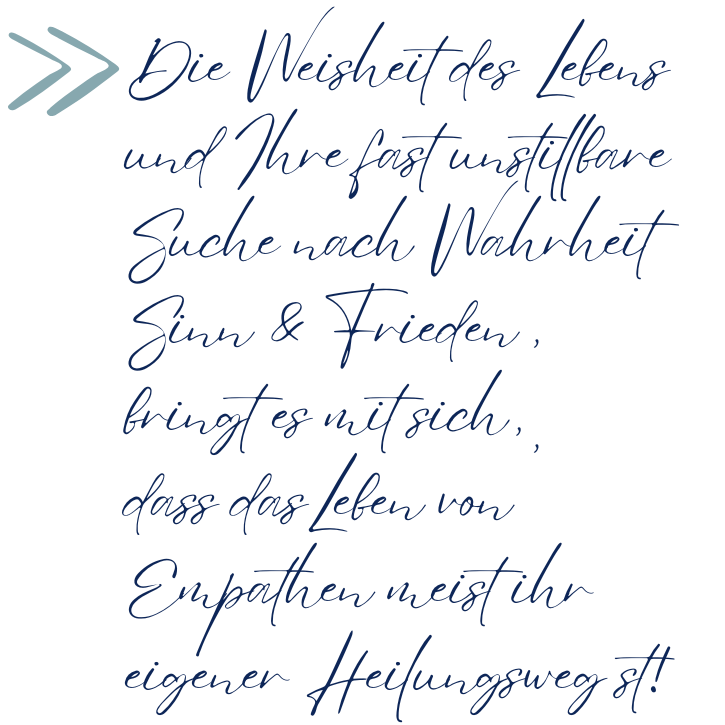 Die Weisheit des Lebens
und Ihre fast unstillbare
Suche nach Wahrheit
Sinn & Frieden ,
bringt es mit sich, ,
dass das Leben von
Empathen meist ihr
eigener Heilungsweg st!